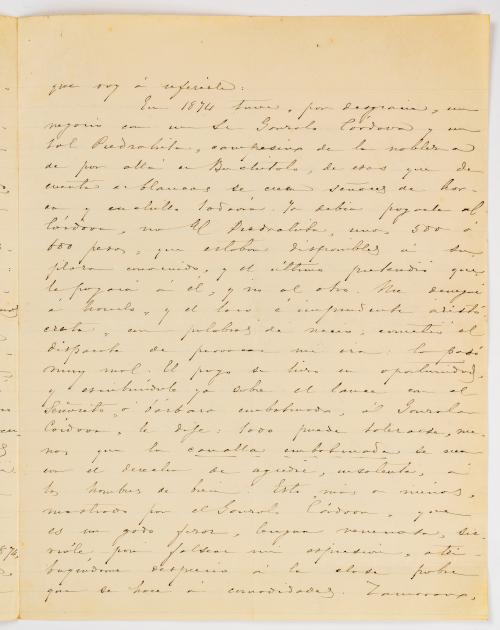 que voy á referirle:
En 1874 tuve, por desgracia, un
negocio con un Sr Gonzalo Córdova y un
tal Piedrahita, de la nobleza
de por allá en, de esos que de
cuenta de blancos se creen señores de hor-
ca y cuchillo todavia. Yo debia pagarle al
Córdova, no al Piedrahita, unos 500 ó
600 pesos, que estaban disponibles á su
plazo convenido, y el último pretendió que
le pagara á él, y no al otro. Me denegué
á hacerlo, y el loco é imprudente aristó-
crata, con palabras de necio, cometió el
disparate de provocar mi ira: lo pasó
muy mal. El pago se hizo en oportunidad,
y escribiéndole ya sobre el lance con el
Señorito ó bárbaro embolsmado, ál Gonzalo
Córdova, le dije: todo puede tolerarse, me-
nos que la canalla se crea
con el derecho de agredir, insolente, á
los hombres de bien. Esto, más o menos,
mostrado por el Gonzalo Córdova, que
es un godo feroz, lengua venenosa, sir-
vióle, para falsear mi expresión, atri-
buyéndome desprecio á la clase pobre
que se hace á comodidades. Zamorano,
1874,